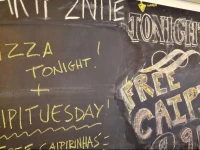 PARTY ZNITE
IZZA
TONIGHT!
+
IPITUESDAY!
FREE CAIPIRINHAS
TONIGHT
FREE
CAIPI